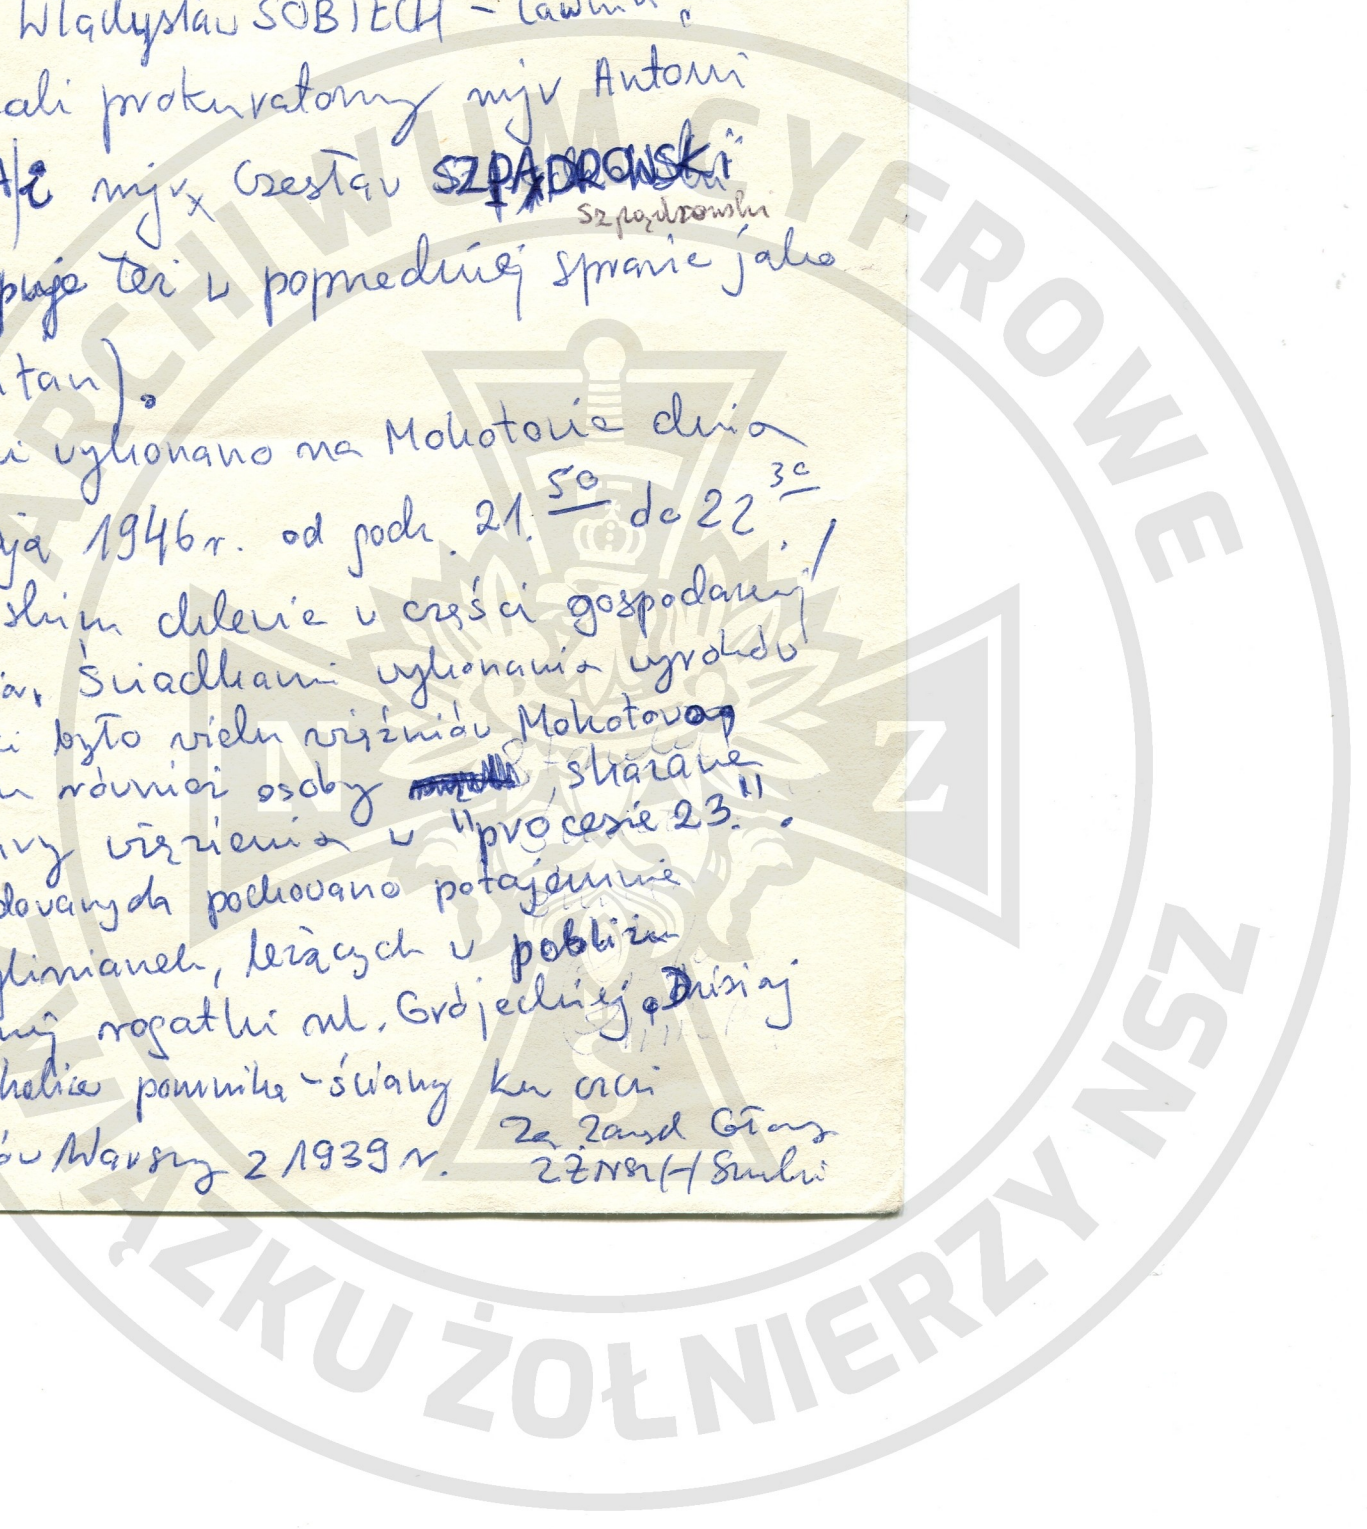 Władysław SOBIECH - ławnik,
ali prokuratorzy mjr Antoni
mjr Czesław SZPĄDROWSKI
Szpądrowski
puje też w poprzedniej sprawie jako
tan).
i wykonano na Mokotowie dnia
ja 1946 r. od godz. 21.50 do 22.30./
skim chlewie w części gospodarczej
a. Świadkami wykonania wyroków
i było wielu więźniów Mokotowa,
również osoby skazane
więzienia w "procesie 23".
dowanych pochowano potajemnie
glinianek, leżących w pobliżu
ej rogatki ul. Grójeckiej. Dzisiaj
kolica pomnika-ściany ku czci
ów Warszawy z 1939 r.
Za Zarząd Główny
ZŻNSZ (-)
ARCHIWUM CYFROWE
ZWIĄZKU ŻOŁNIERZY NSZ
N Z